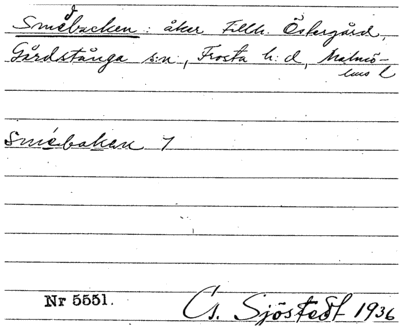 Smedbacken: åker tillh. Östergård,
Gårdstånga s:n, Frosta h:d, Malmö-
hus l
Smébakan 1
Nr 5551. Cs. Sjöstedt 1936